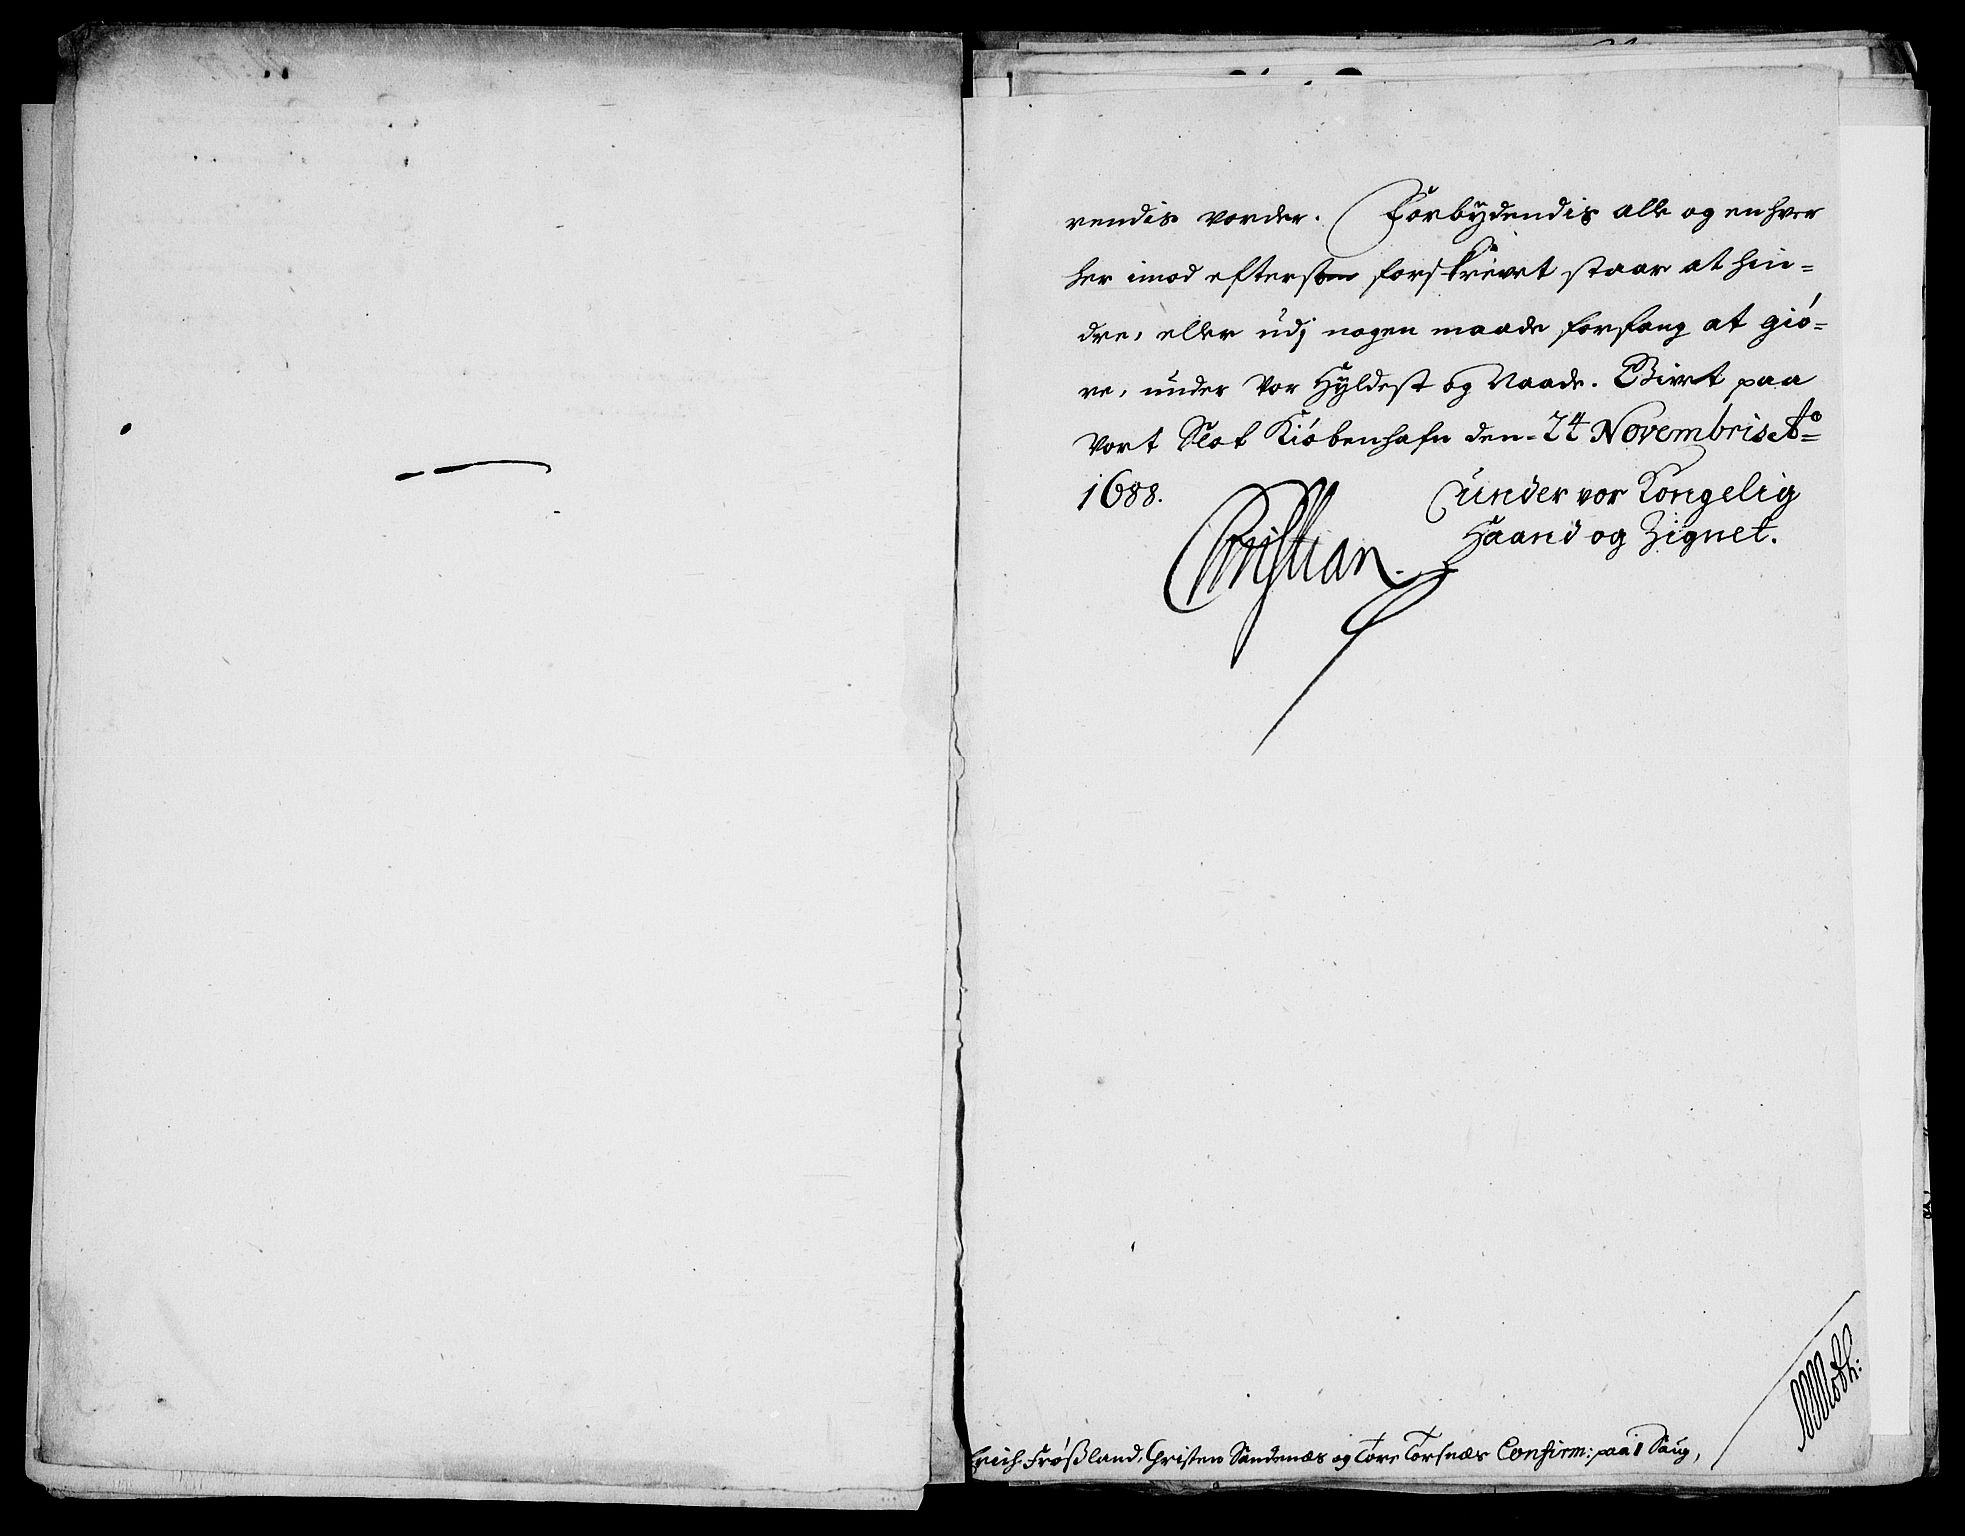 rendis vorder. Forbydendis alle og enhver
her imod eftersom forskrevet staar at hin=
dre, eller udj nogen maade forfang at giö=
re, under Vor Hyldest og Naade. Givet paa
Vort Slot Kiöbenhafn den 24 Novembris Ao=
1688. under vor Kongelig
Haand og Zignet.
Christian.
MMoth:
Erich Frößland, Christen Sandenæs og Tore Torsnæs Confirm: paa 1 Saug,